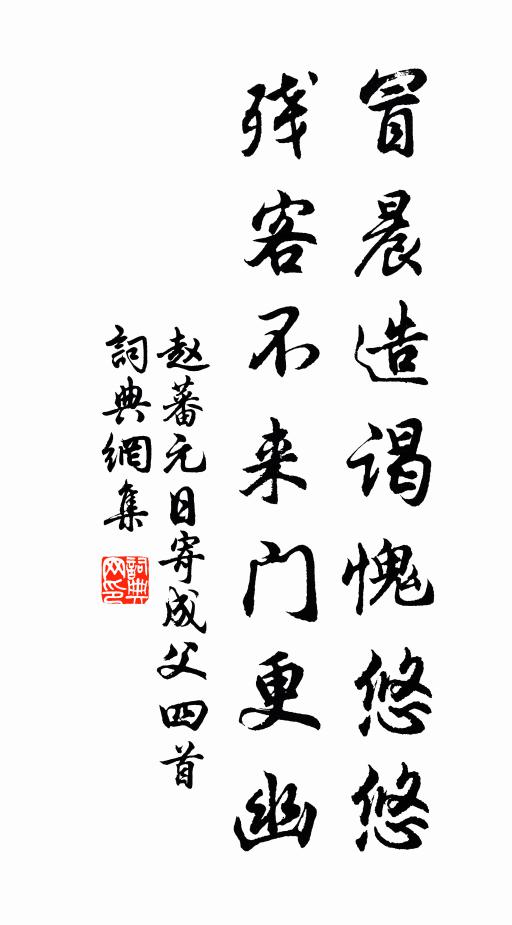 冒晨造谒愧悠悠
残客不来门更幽
赵蕃元日寄成父四首
詞典網集
詞典网印